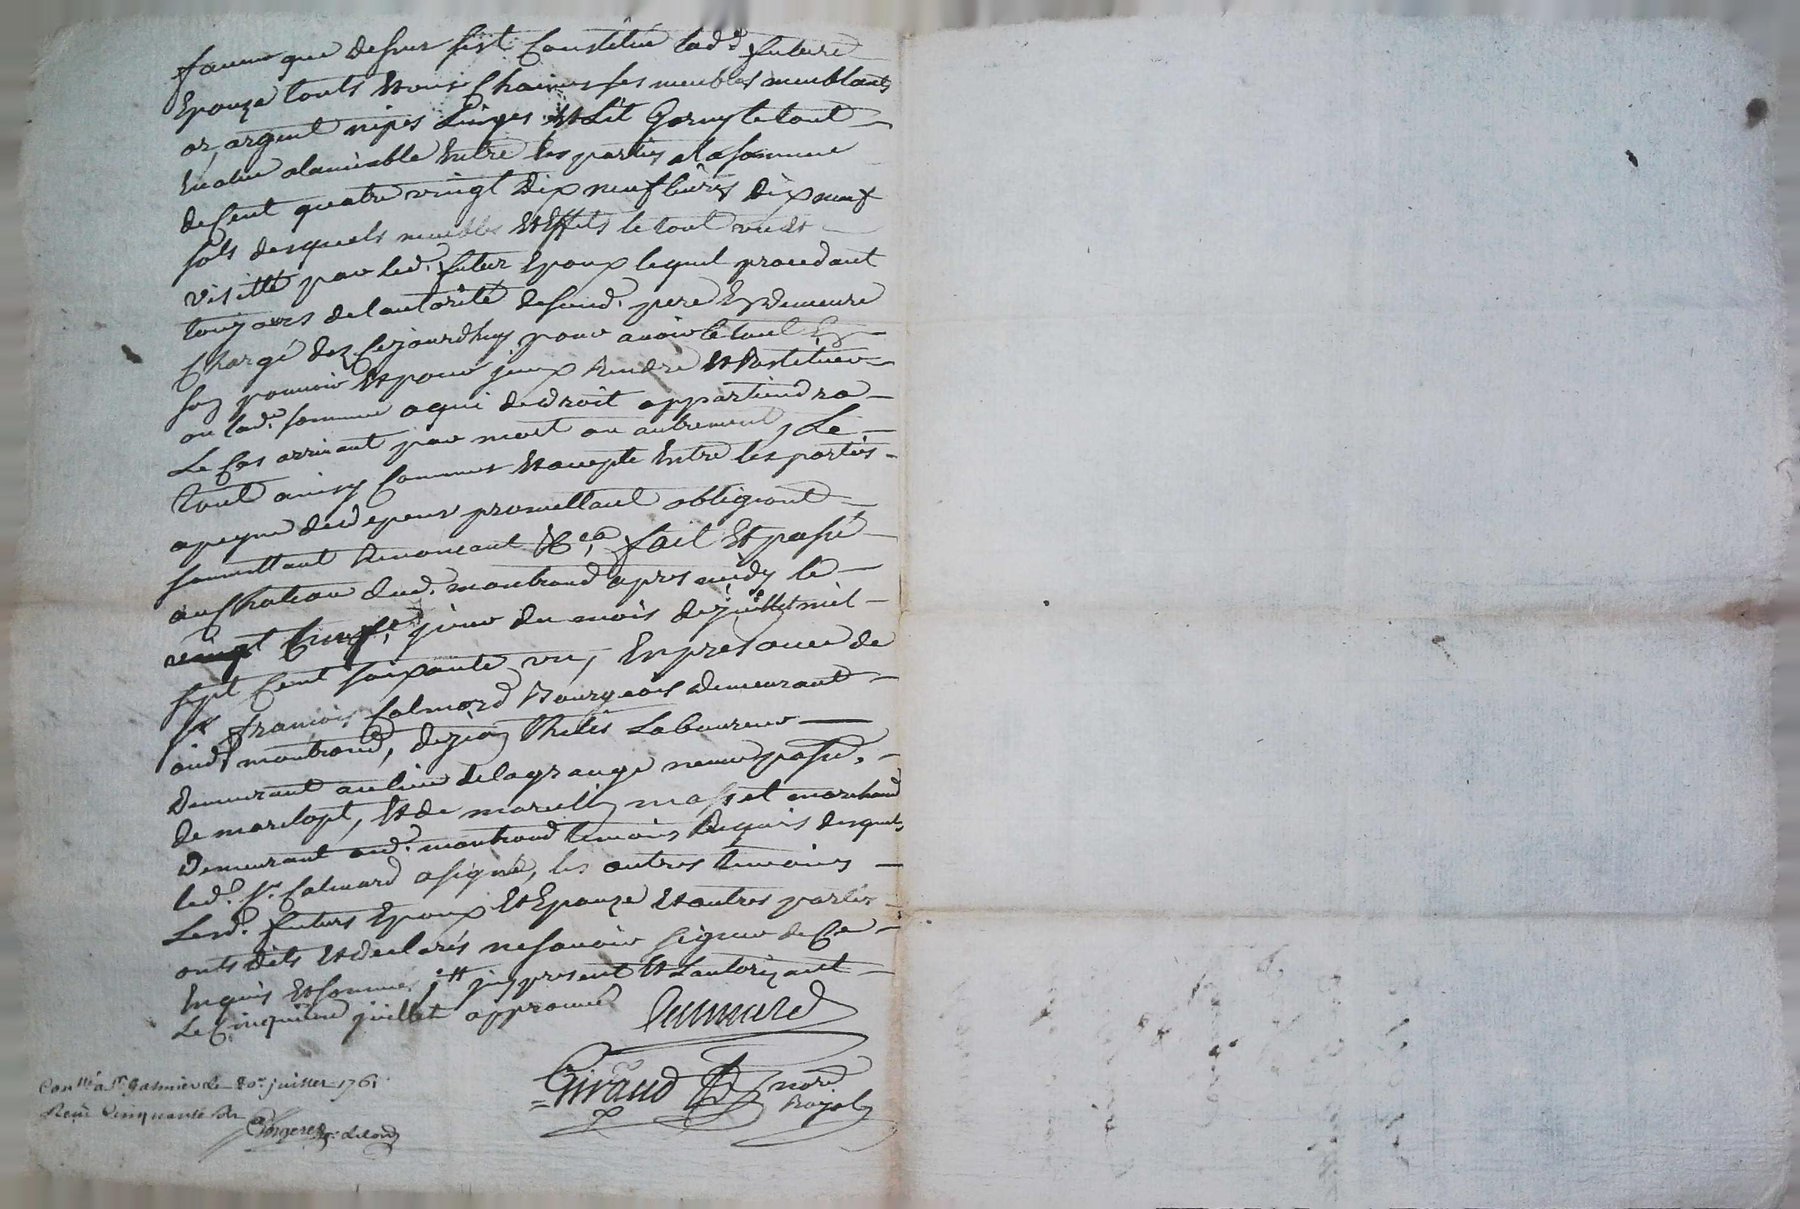 faveur que dessus s'est Constitué lad.e future
Epouze touts et uns Chaicuns ses meubles meublants
or, argent nipes Linges et Lit Garny le tout
Evalué alamiable Entre les parties a la somme
de Cent quatre vingt Dix neuf livres Dix neuf
sols desquels meubles et Effets le tout vu et
visitté par led. futur Epoux lequel procedant
toujours de l'autorité de sond. pere En demeure
Chargé dez Cejourdhuy pour avoir le tout En
son pouvoir et pour jceux Rendre et Restituer
ou lad.e somme a qui de droit appartiendra
Le Cas arrivant par mort ou autrement, Le
tout ainsy Convenu et accepté Entre les parties
a peyne de depens promettant obligeant
soumettant Renoncant &ca, fait et passé
au Chateau dud. montrond apres midy le
Cinq.e jour du mois de juillet mil
sept Cent soixante un, En presance de
Sr francois Calmard Bourgeois demeurant
aud. montrond, de jean Laboureur
Demeurant au lieu de la grange neuve parse.
de marclopt, et de marcellin masset marchand
Demeurant aud. montrond temoins Requis desquels
led. Sr Calmard a signé, les autres temoins
Lesd. futurs Epoux et Epouze et autres parties
onts dits et declarés ne savoir signer de Ce
Enquis et sommés, present et L'autorizant
Le Cinquieme juillet approuvé
Calmard
Giraud no.re
Royal
Con.llé a St Galmier le 20.e juillet 1761
Receu Cinquante